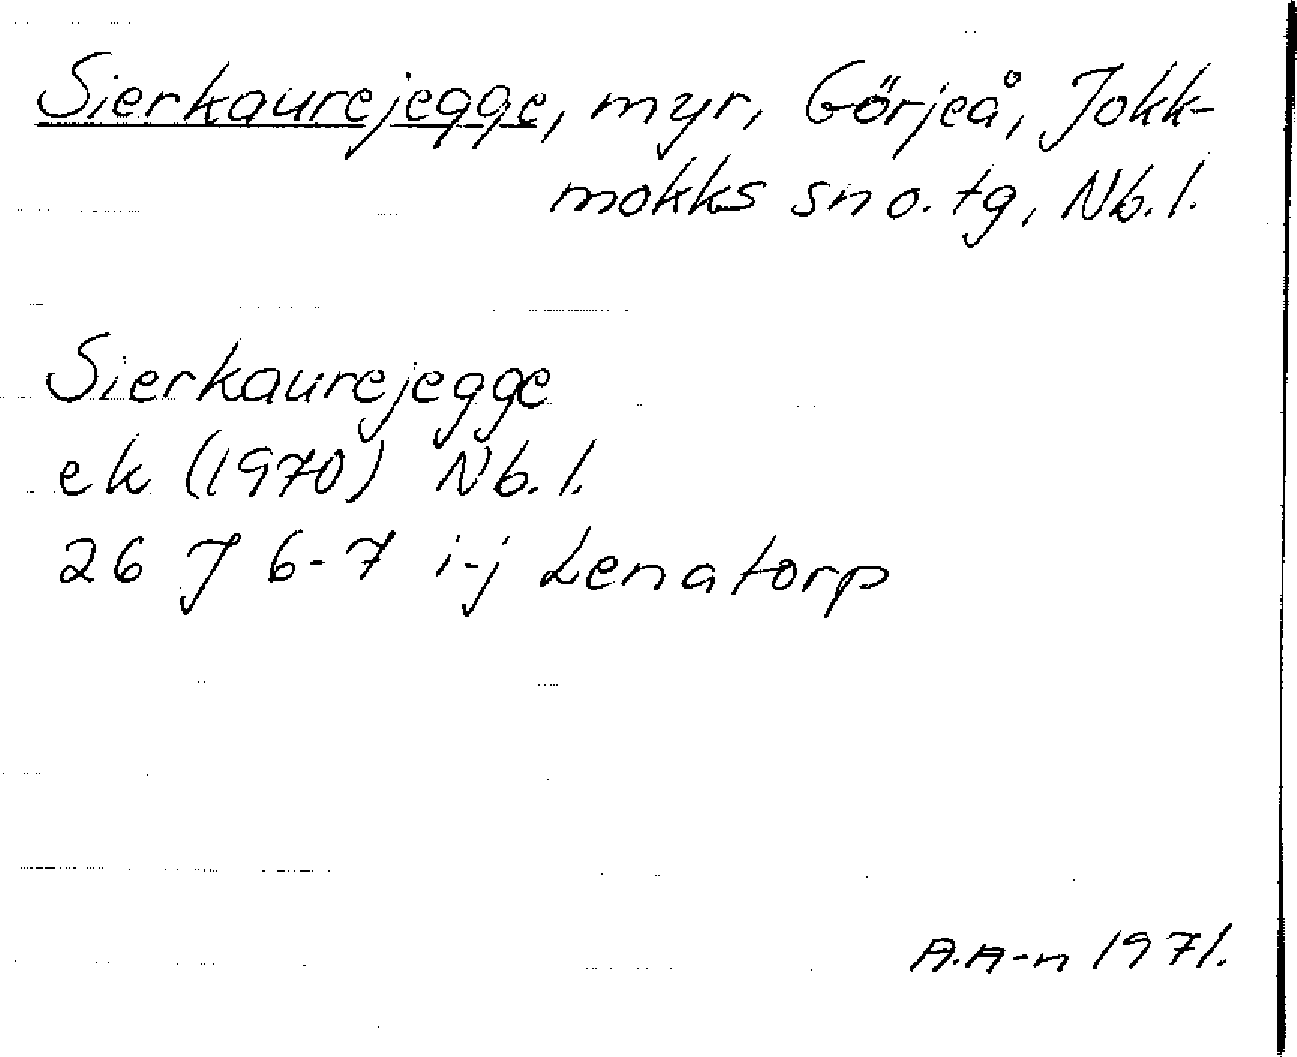 Sierkaurejegge, myr, Görjeå, Jokk-
mokks sn o. tg, Nb. l.
Sierkaurejegge
ek (1970) Nb. l.
26 J 6-7 i-j Lenatorp
A.A-n 1971.